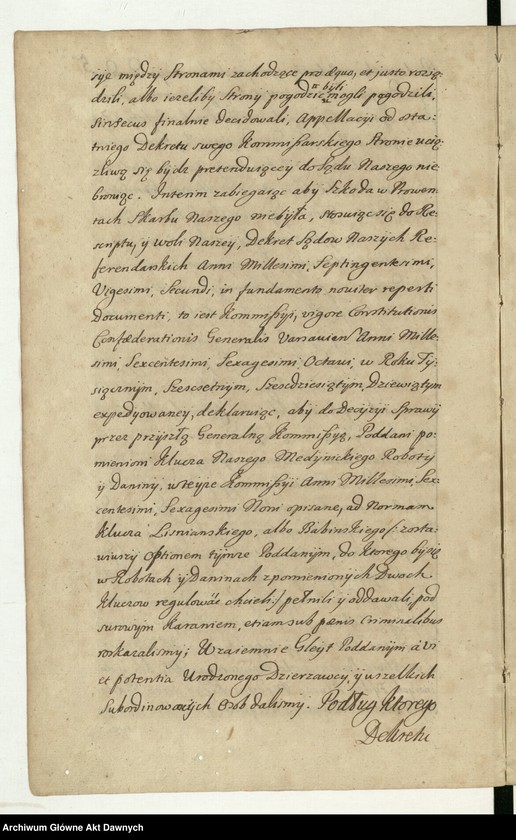 się między Stronami zachodzące pro aequo, et justo rozsą-
dzili, albo ieżeliby Strony pogodzić się mogli pogodzili,
Sin secus finalnie decidowali, Appellacyi od osta-
tniego Dekretu swego Kommissarskiego Stronie ucią-
żliwą się bydź pretenduiącey do Sądu Naszego nie
broniąc. Interim zabiegaiąc aby Szkoda w Prowen-
tach Skarbu Naszego niebyła, stosuiąc się do Re-
scriptu, y Woli Naszey, Dekret Sądow Naszych Re-
ferendarskich Anni Millesimi, Septingentesimi,
Vigesimi, Secundi, in fundamento noviter reperti
Documenti, to iest Kommissyi, vigore Constitutionis
Confaederationis Generalis Varsavien Anni Mille-
simi, Sexcentesimi, Sexagesimi Octavi, w Roku Ty-
siącznym, Szescsetnym, Szescdziesiątym, Dziewiątym
expedyowaney, deklaruiąc, aby do Decyzyi Sprawy
przez przyszłą Generalną Kommissyą, Poddani po-
mienioni Klucza Naszego Medynickiego Roboty
y Daniny, w teyże Kommissyi Anni Millesimi, Sex-
centesimi, Sexagesimi Noni opisane, ad Normam
Klucza Lisnianskiego, albo Babinskiego /: zosta-
wiwszy Optionem tymże Poddanym, do ktorego by się
w Robotach y Daninach z pomienionych Dwoch
Kluczow regulować chcieli :/ pełnili y oddawali, pod
surowym Karaniem, etiam sub paenis Criminalibus
roskazalismy; Wzaiemnie Gleyt Poddanym à vi
et potentia Urodzonego Dzierzawcy, y wszelkich
Subordinowanych Osob dalismy. Podług Ktorego
Dekretu
Archiwum Główne Akt Dawnych